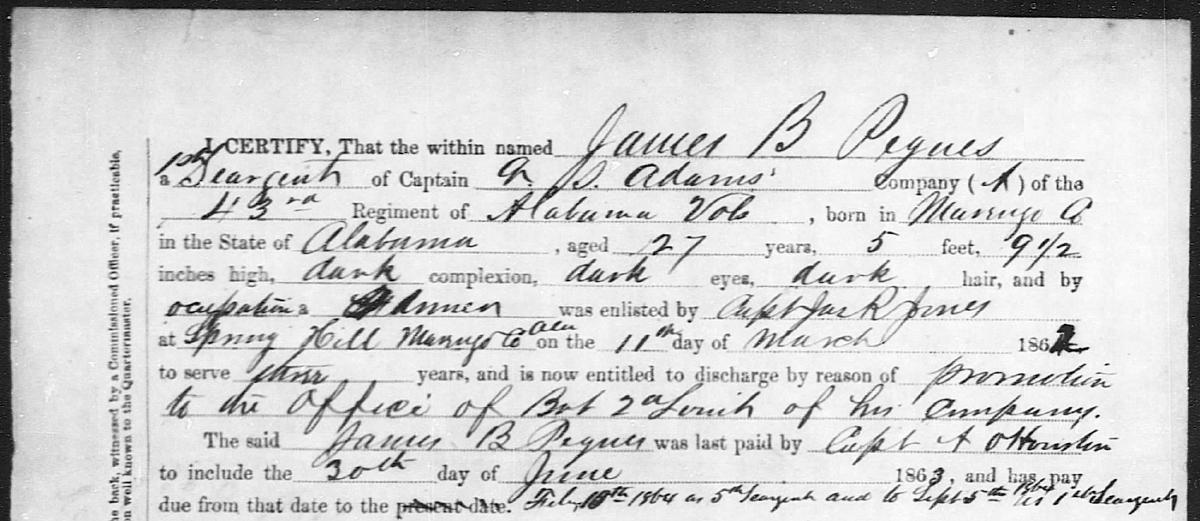 I CERTIFY, That the within named James B Pegues
a 1st Seargent of Captain G. S. Adams' Company (A) of the
43rd Regiment of Alabama Vols, born in Marengo C
in the State of Alabama, aged 27 years, 5 feet, 9 1/2
inches high, dark complexion, dark eyes, dark hair, and by
ocupation a was enlisted by Capt Jones
at Spring Hill Marengo Co Ala on the 11th day of March 1862
to serve three years, and is now entitled to discharge by reason of promotion
to the Office of 2d Lieut of his Company.
The said James B Pegues was last paid by Capt A Houston
to include the 30th day of June 1863, and has pay
due from that date to the present date. 1864 as 5th Seargent and to Sept 5th 1864 as 1st Seargent
the back, witnessed by a Commissioned Officer, if practicable,
on well known to the Quartermaster.